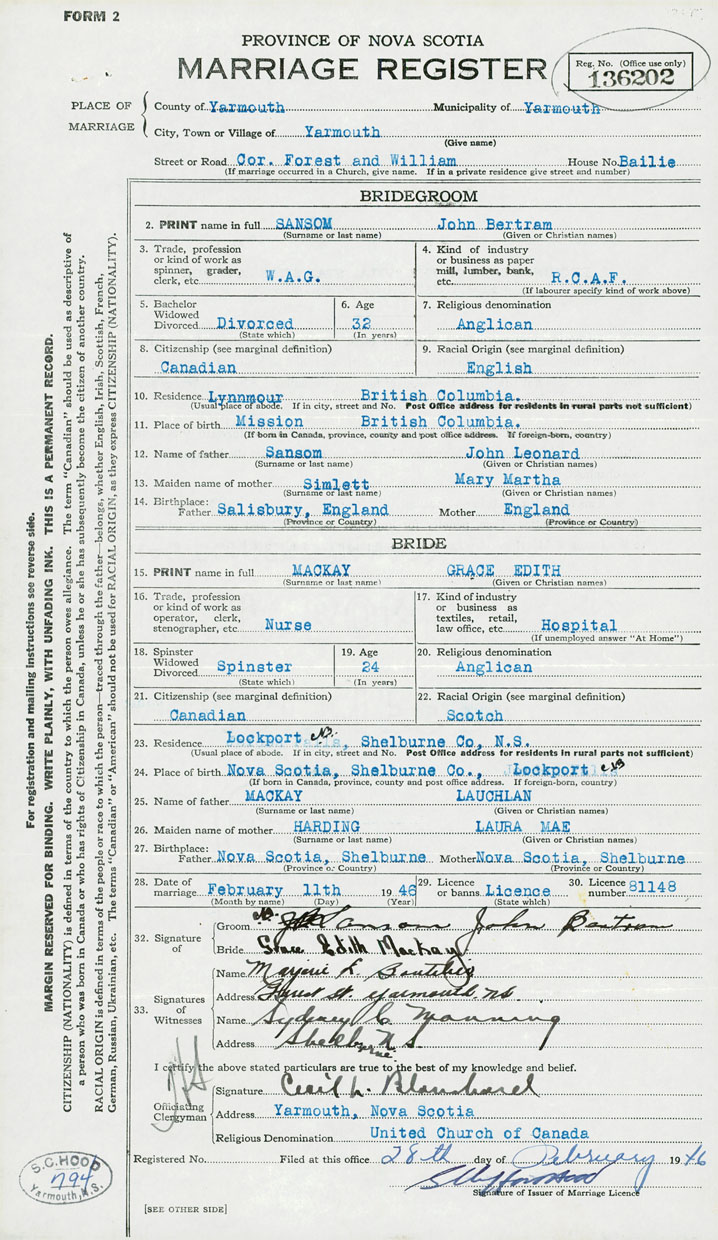 FORM 2
PROVINCE OF NOVA SCOTIA
MARRIAGE REGISTER
Reg. No. (Office use only)
136202
PLACE OF MARRIAGE
County of Yarmouth Municipality of Yarmouth
City, Town or Village of Yarmouth
(Give name)
Street or Road Cor. Forest and William House No. Bailie
(If marriage occurred in a Church, give name. If in a private residence give street and number)
BRIDEGROOM
2. PRINT name in full SANSOM John Bertram
(Surname or last name) (Given or Christian names)
3. Trade, profession or kind of work as spinner, grader, clerk, etc. W.A.G.
4. Kind of industry or business as paper mill, lumber, bank, etc. R.C.A.F.
(If labourer specify kind of work above)
5. Bachelor Widowed Divorced Divorced
(State which)
6. Age 32
(In years)
7. Religious denomination
Anglican
8. Citizenship (see marginal definition)
Canadian
9. Racial Origin (see marginal definition)
English
10. Residence Lynnmour British Columbia.
(Usual place of abode. If in city, street and No. Post Office address for residents in rural parts not sufficient)
11. Place of birth Mission British Columbia.
(If born in Canada, province, county and post office address. If foreign-born, country)
12. Name of father Sansom John Leonard
(Surname or last name) (Given or Christian names)
13. Maiden name of mother Simlett Mary Martha
(Surname or last name) (Given or Christian names)
14. Birthplace: Father Salisbury, England Mother England
(Province or Country) (Province or Country)
BRIDE
15. PRINT name in full MACKAY GRACE EDITH
(Surname or last name) (Given or Christian names)
16. Trade, profession or kind of work as operator, clerk, stenographer, etc. Nurse
17. Kind of industry or business as textiles, retail, law office, etc. Hospital
(If unemployed answer "At Home")
18. Spinster Widowed Divorced Spinster
(State which)
19. Age 24
(In years)
20. Religious denomination
Anglican
21. Citizenship (see marginal definition)
Canadian
22. Racial Origin (see marginal definition)
Scotch
23. Residence Lockport, Shelburne Co, N.S.
(Usual place of abode. If in city, street and No. Post Office address for residents in rural parts not sufficient)
24. Place of birth Nova Scotia, Shelburne Co., Lockport
(If born in Canada, province, county and post office address. If foreign-born, country)
25. Name of father MACKAY LAUCHLAN
(Surname or last name) (Given or Christian names)
26. Maiden name of mother HARDING LAURA MAE
(Surname or last name) (Given or Christian names)
27. Birthplace: Father Nova Scotia, Shelburne Mother Nova Scotia, Shelburne
(Province or Country) (Province or Country)
28. Date of marriage February 11th 1946
(Month by name) (Day) (Year)
29. Licence or banns Licence
(State which)
30. Licence number 81148
32. Signature of
Groom Sansom John Bertram
Bride Grace Edith MacKay
33. Signatures of Witnesses
Name Marjorie L.
Address Forest St. Yarmouth NS
Name Sydney C Manning
Address Shelburne N.S.
I certify the above stated particulars are true to the best of my knowledge and belief.
Officiating Clergyman
Signature Cecil L. Blanchard
Address Yarmouth, Nova Scotia
Religious Denomination United Church of Canada
Registered No. Filed at this office 28th day of February 1946
Signature of Issuer of Marriage Licence
[SEE OTHER SIDE]
S.C. HOOD
794
Yarmouth, N.S.
For registration and mailing instructions see reverse side.
MARGIN RESERVED FOR BINDING. WRITE PLAINLY, WITH UNFADING INK. THIS IS A PERMANENT RECORD.
CITIZENSHIP (NATIONALITY) is defined in terms of the country to which the person owes allegiance. The term "Canadian" should be used as descriptive of
a person who was born in Canada or who has rights of Citizenship in Canada, unless he or she has subsequently become the citizen of another country.
RACIAL ORIGIN is defined in terms of the people or race to which the person—traced through the father—belongs, whether English, Irish, Scottish, French,
German, Russian, Ukrainian, etc. The terms "Canadian" or "American" should not be used for RACIAL ORIGIN, as they express CITIZENSHIP (NATIONALITY).